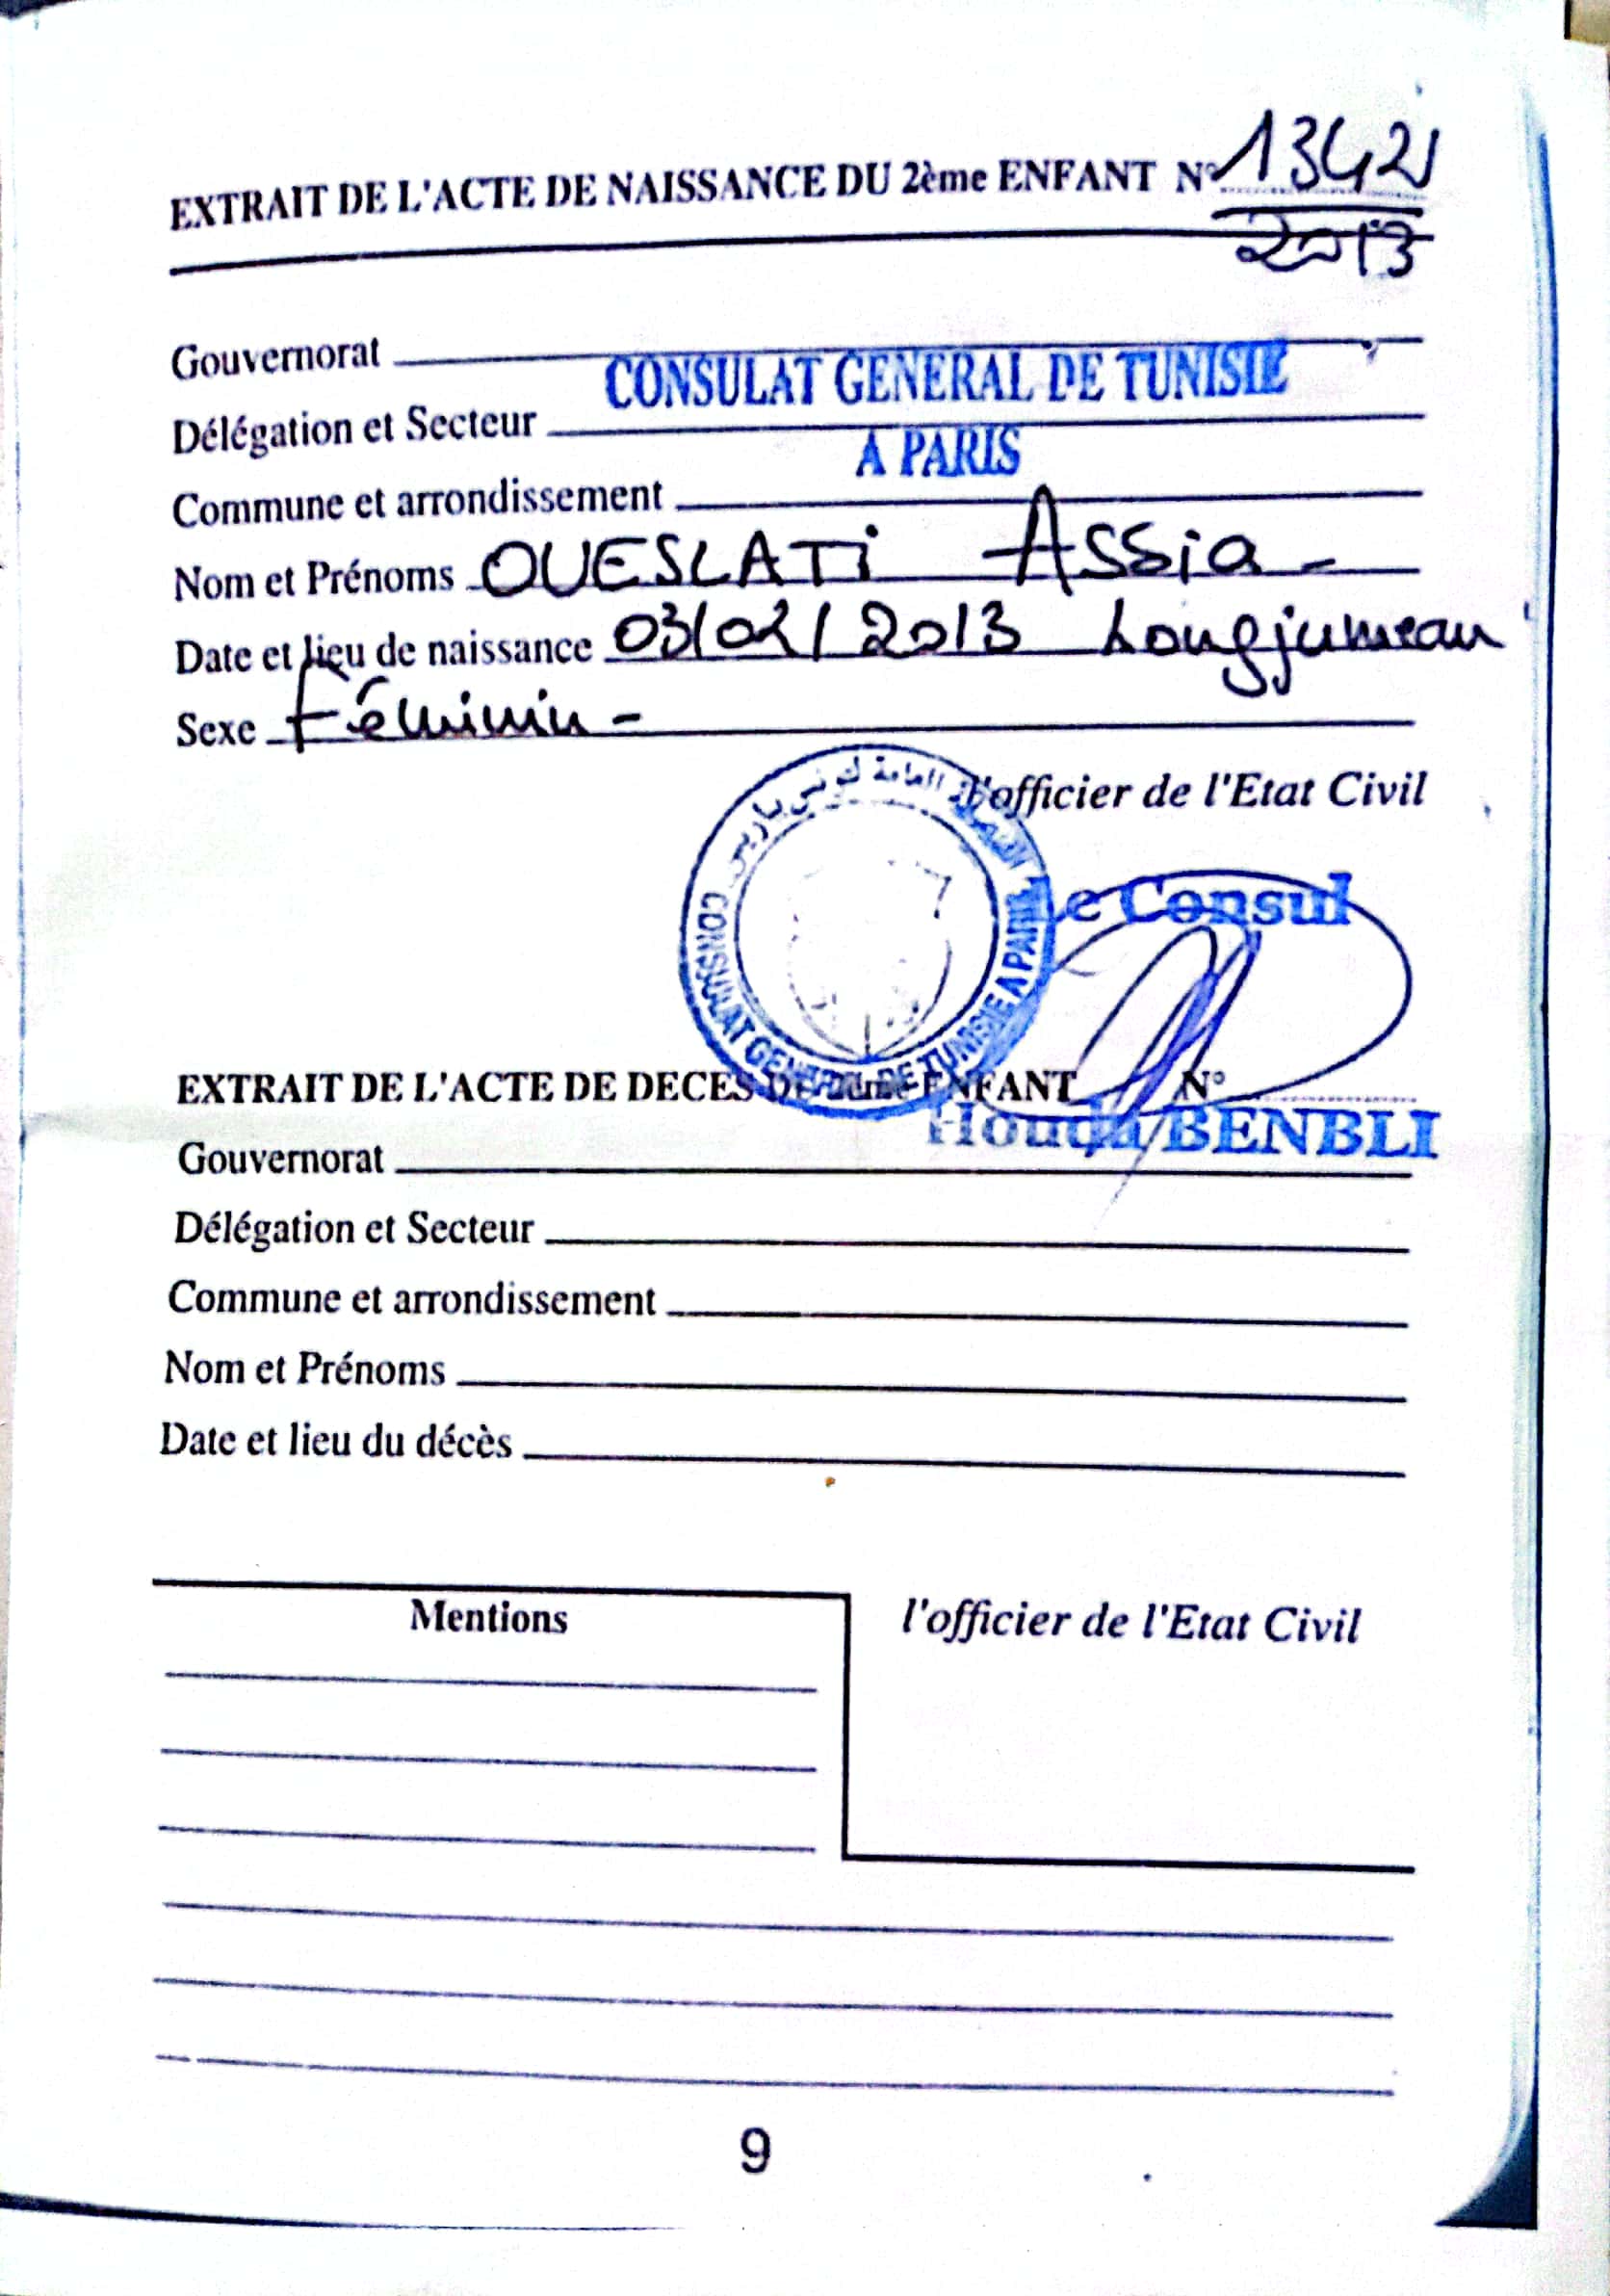 EXTRAIT DE L'ACTE DE NAISSANCE DU 2ème ENFANT N° 13421
2013
Gouvernorat
CONSULAT GENERAL DE TUNISIE
Délégation et Secteur
A PARIS
Commune et arrondissement
Nom et Prénoms OUESLATi Assia -
Date et lieu de naissance 03/02/2013 Longjumeau
Sexe Féminin -
l'officier de l'Etat Civil
القنصلية العامة لتونس بباريس
CONSULAT GENERAL DE TUNISIE A PARIS
Le Consul
EXTRAIT DE L'ACTE DE DECES DE 2ème ENFANT N°
Houda BENBLI
Gouvernorat
Délégation et Secteur
Commune et arrondissement
Nom et Prénoms
Date et lieu du décès
Mentions
l'officier de l'Etat Civil
9